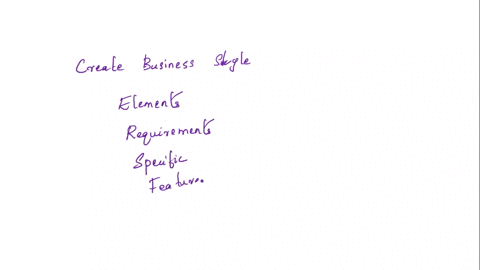 Create Business Skgle
Elements
Requirements
Specific
Feature.